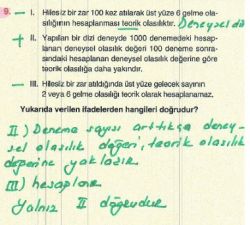 9. – I. Hilesiz bir zar 100 kez atılarak üst yüze 6 gelme ola-
sılığının hesaplanması teorik olasılıktır. Deneysel dir
+ II. Yapılan bir dizi deneyde 1000 denemedeki hesap-
lanan deneysel olasılık değeri 100 deneme sonra-
sındaki hesaplanan deneysel olasılık değerine göre
teorik olasılığa daha yakındır.
– III. Hilesiz bir zar atıldığında üst yüze gelecek sayının
2 veya 6 gelme olasılığı teorik olarak hesaplanamaz.
Yukarıda verilen ifadelerden hangileri doğrudur?
II) Deneme sayısı arttıkça deney-
sel olasılık değeri, teorik olasılık
değerine yaklaşır.
III) hesaplanır
Yalnız II doğrudur